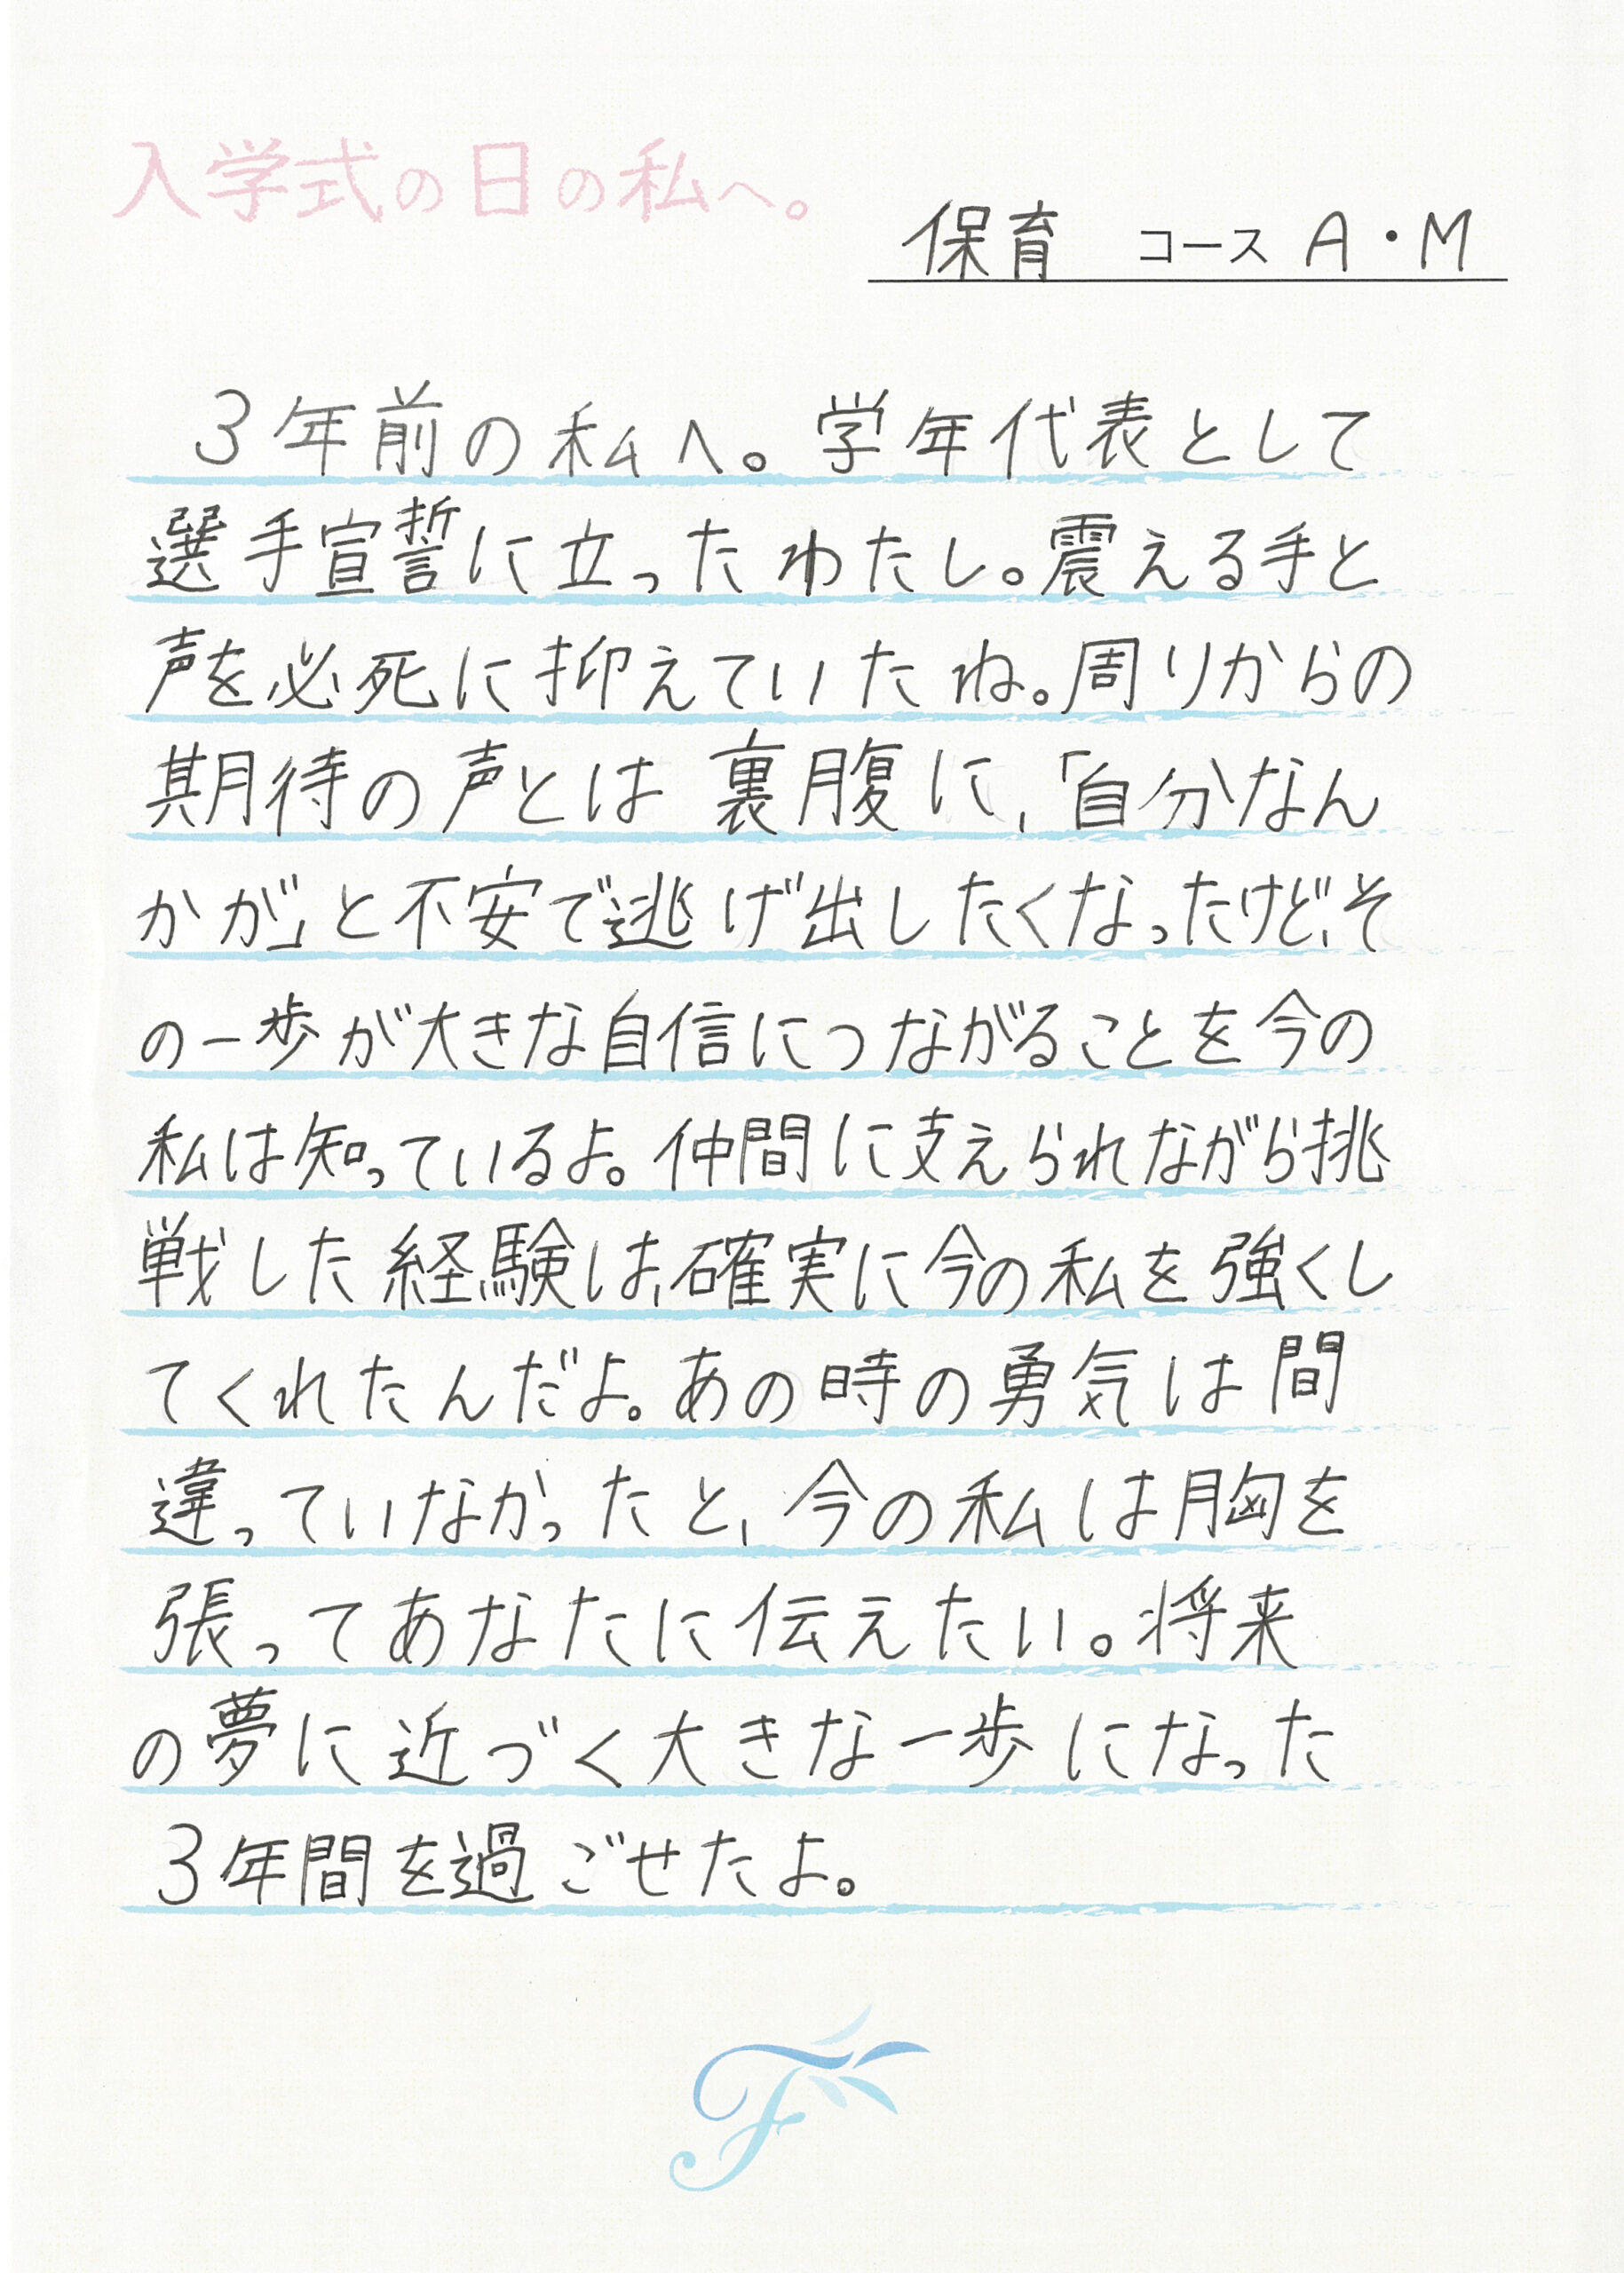 入学式の日の私へ。
保育 コース A・M
3年前の私へ。学年代表として
選手宣誓に立ったわたし。震える手と
声を必死に抑えていたね。周りからの
期待の声とは裏腹に、「自分なん
かが」と不安で逃げ出したくなったけど、そ
の一歩が大きな自信につながることを今の
私は知っているよ。仲間に支えられながら挑
戦した経験は、確実に今の私を強くし
てくれたんだよ。あの時の勇気は間
違っていなかったと、今の私は胸を
張ってあなたに伝えたい。将来
の夢に近づく大きな一歩になった
3年間を過ごせたよ。
F